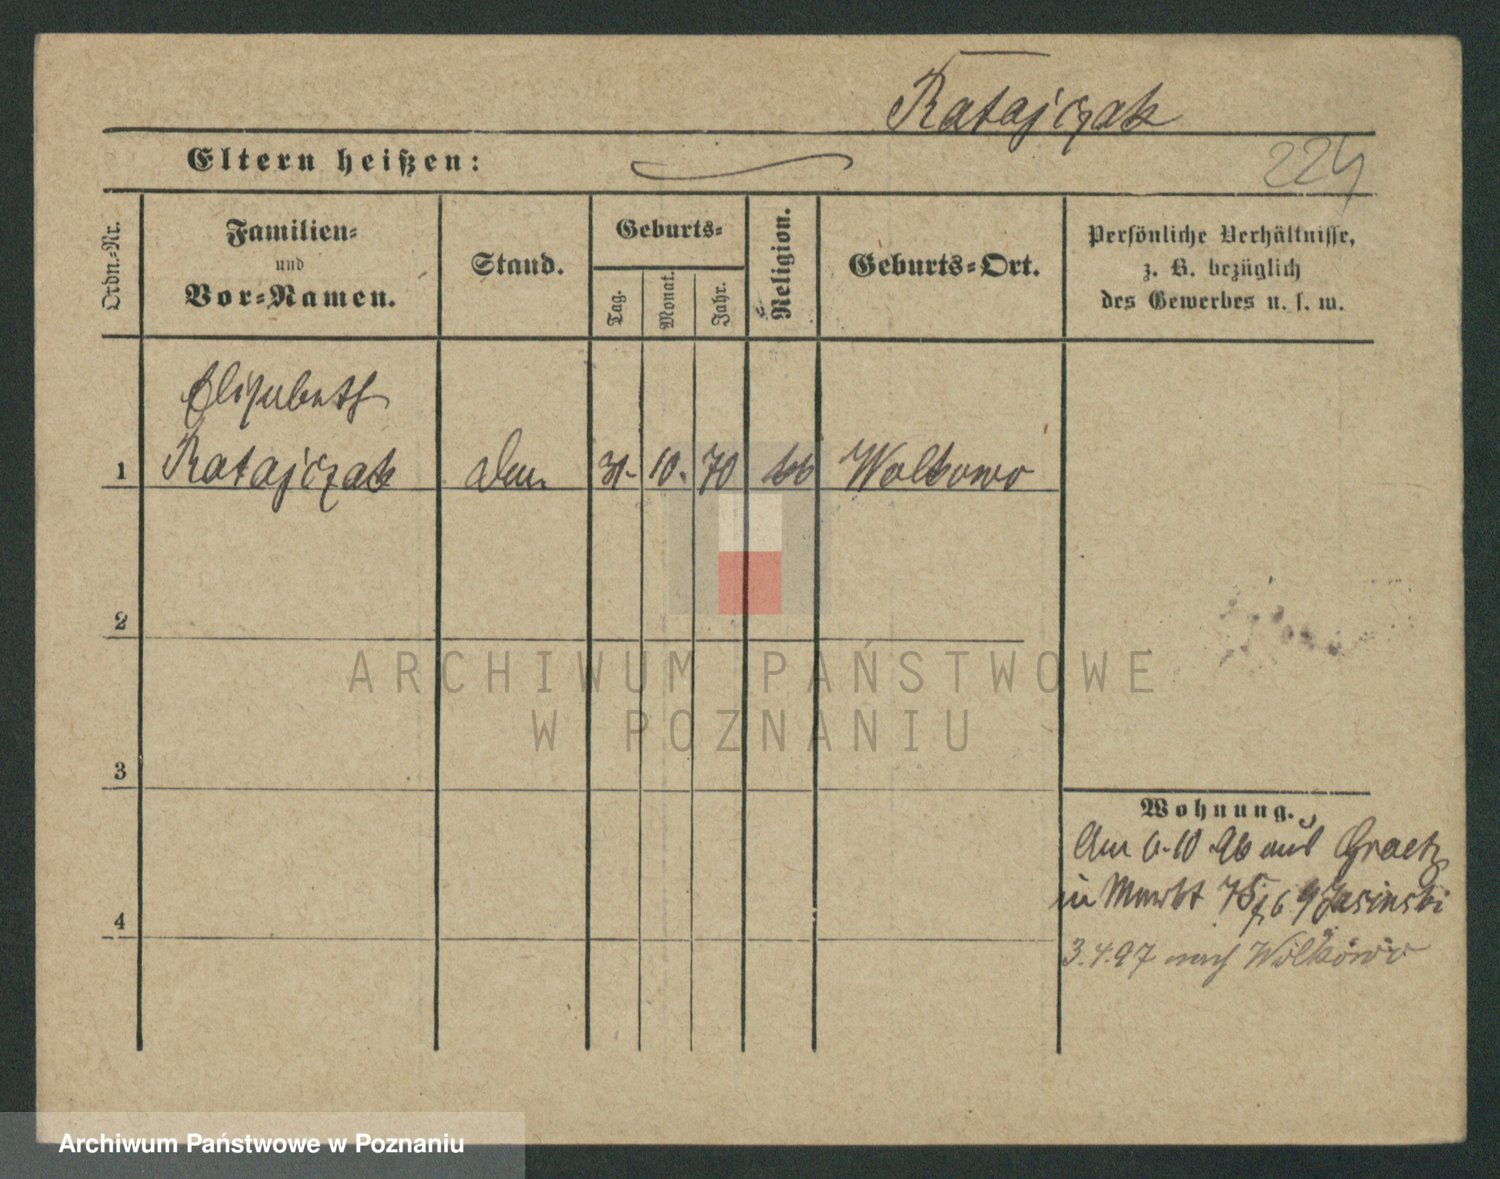 Ratajczak
Eltern heißen:
224
Ordn.-Nr.
Familien-
und
Vor-Namen.
Stand.
Geburts-
Tag.
Monat.
Jahr.
Religion.
Geburts-Ort.
Persönliche Verhältnisse,
z. B. bezüglich
des Gewerbes u. s. w.
Elisabeth
1 Ratajczak 31. 10. 70 Wolkowo
2
3
4
Wohnung.
Am 6.10 96 aus Graetz
in Markt 75/76 Jasinski
3.4.97 nach Wolkowo
ARCHIWUM PAŃSTWOWE
W POZNANIU
Archiwum Państwowe w Poznaniu